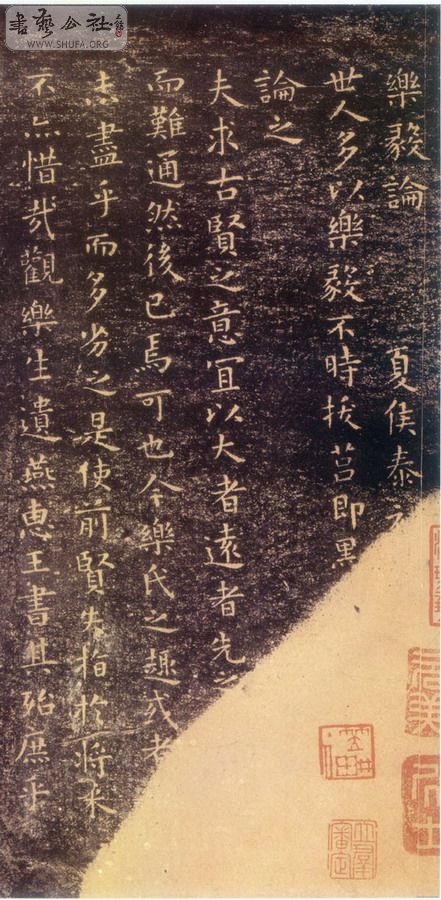 書藝公社
WWW.SHUFA.ORG
樂毅論
夏侯泰
世人多以樂毅不時拔莒即墨
論之
夫求古賢之意宜以大者遠者先之
而難通然後已焉可也今樂氏之趣或者
未盡乎而多劣之是使前賢失指於將来
不亦惜哉觀樂生遺燕惠王書其殆庶乎